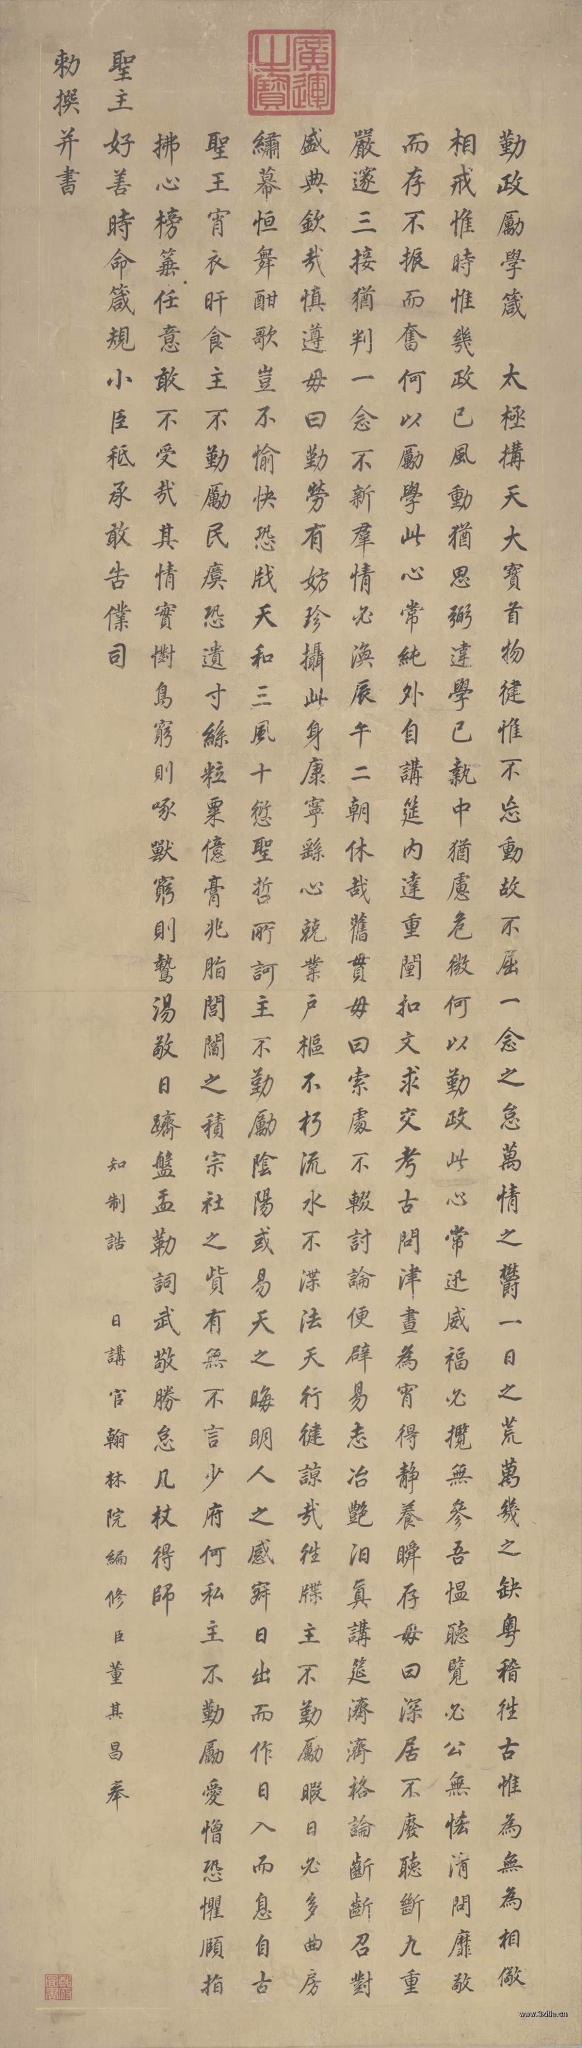 勤政勵學箴　太極搆天大寶首物健惟不忘動故不屈一念之怠萬情之欝一日之荒萬幾之缺粵稽徃古惟為無為相儆
相戒惟時惟幾政已風動猶思弼違學已執中猶慮危微何以勤政此心常迅威福必攬無參吾愠聽覽必公無恡淸問靡敢
而存不振而奮何以勵學此心常純外自講筵內達重闈扣文求交考古問津晝為宵得靜養瞬存毋曰深居不廢聽斷九重
嚴邃三接猶判一念不新羣情必渙辰午二朝休哉舊貫毋曰索處不輟討論便辟易志冶艷汩眞講筵濟濟格論齗齗召對
盛典欽哉慎遵毋曰勤勞有妨珍攝此身康寧繇心兢業戶樞不朽流水不渫法天行健諒哉徃牒主不勤勵暇日必多曲房
繡幕恒舞酣歌豈不愉快恐戕天和三風十愆聖哲所訶主不勤勵陰陽或易天之晦明人之感辟日出而作日入而息自古
聖王宵衣旰食主不勤勵民瘼恐遺寸絲粒粟億膏兆脂閭閻之積宗社之貲有無不言少府何私主不勤勵愛憎恐懼頋指
拂心榜箠任意敢不受哉其情實懟鳥窮則啄獸窮則鷙湯敬日躋盤盂勒詞武敬勝怠几杖得師
聖主好善時命箴規小臣秪承敢告僕司
知制誥　日講官翰林院編修臣董其昌奉
勑撰并書
廣運之寶
www.3zitie.cn